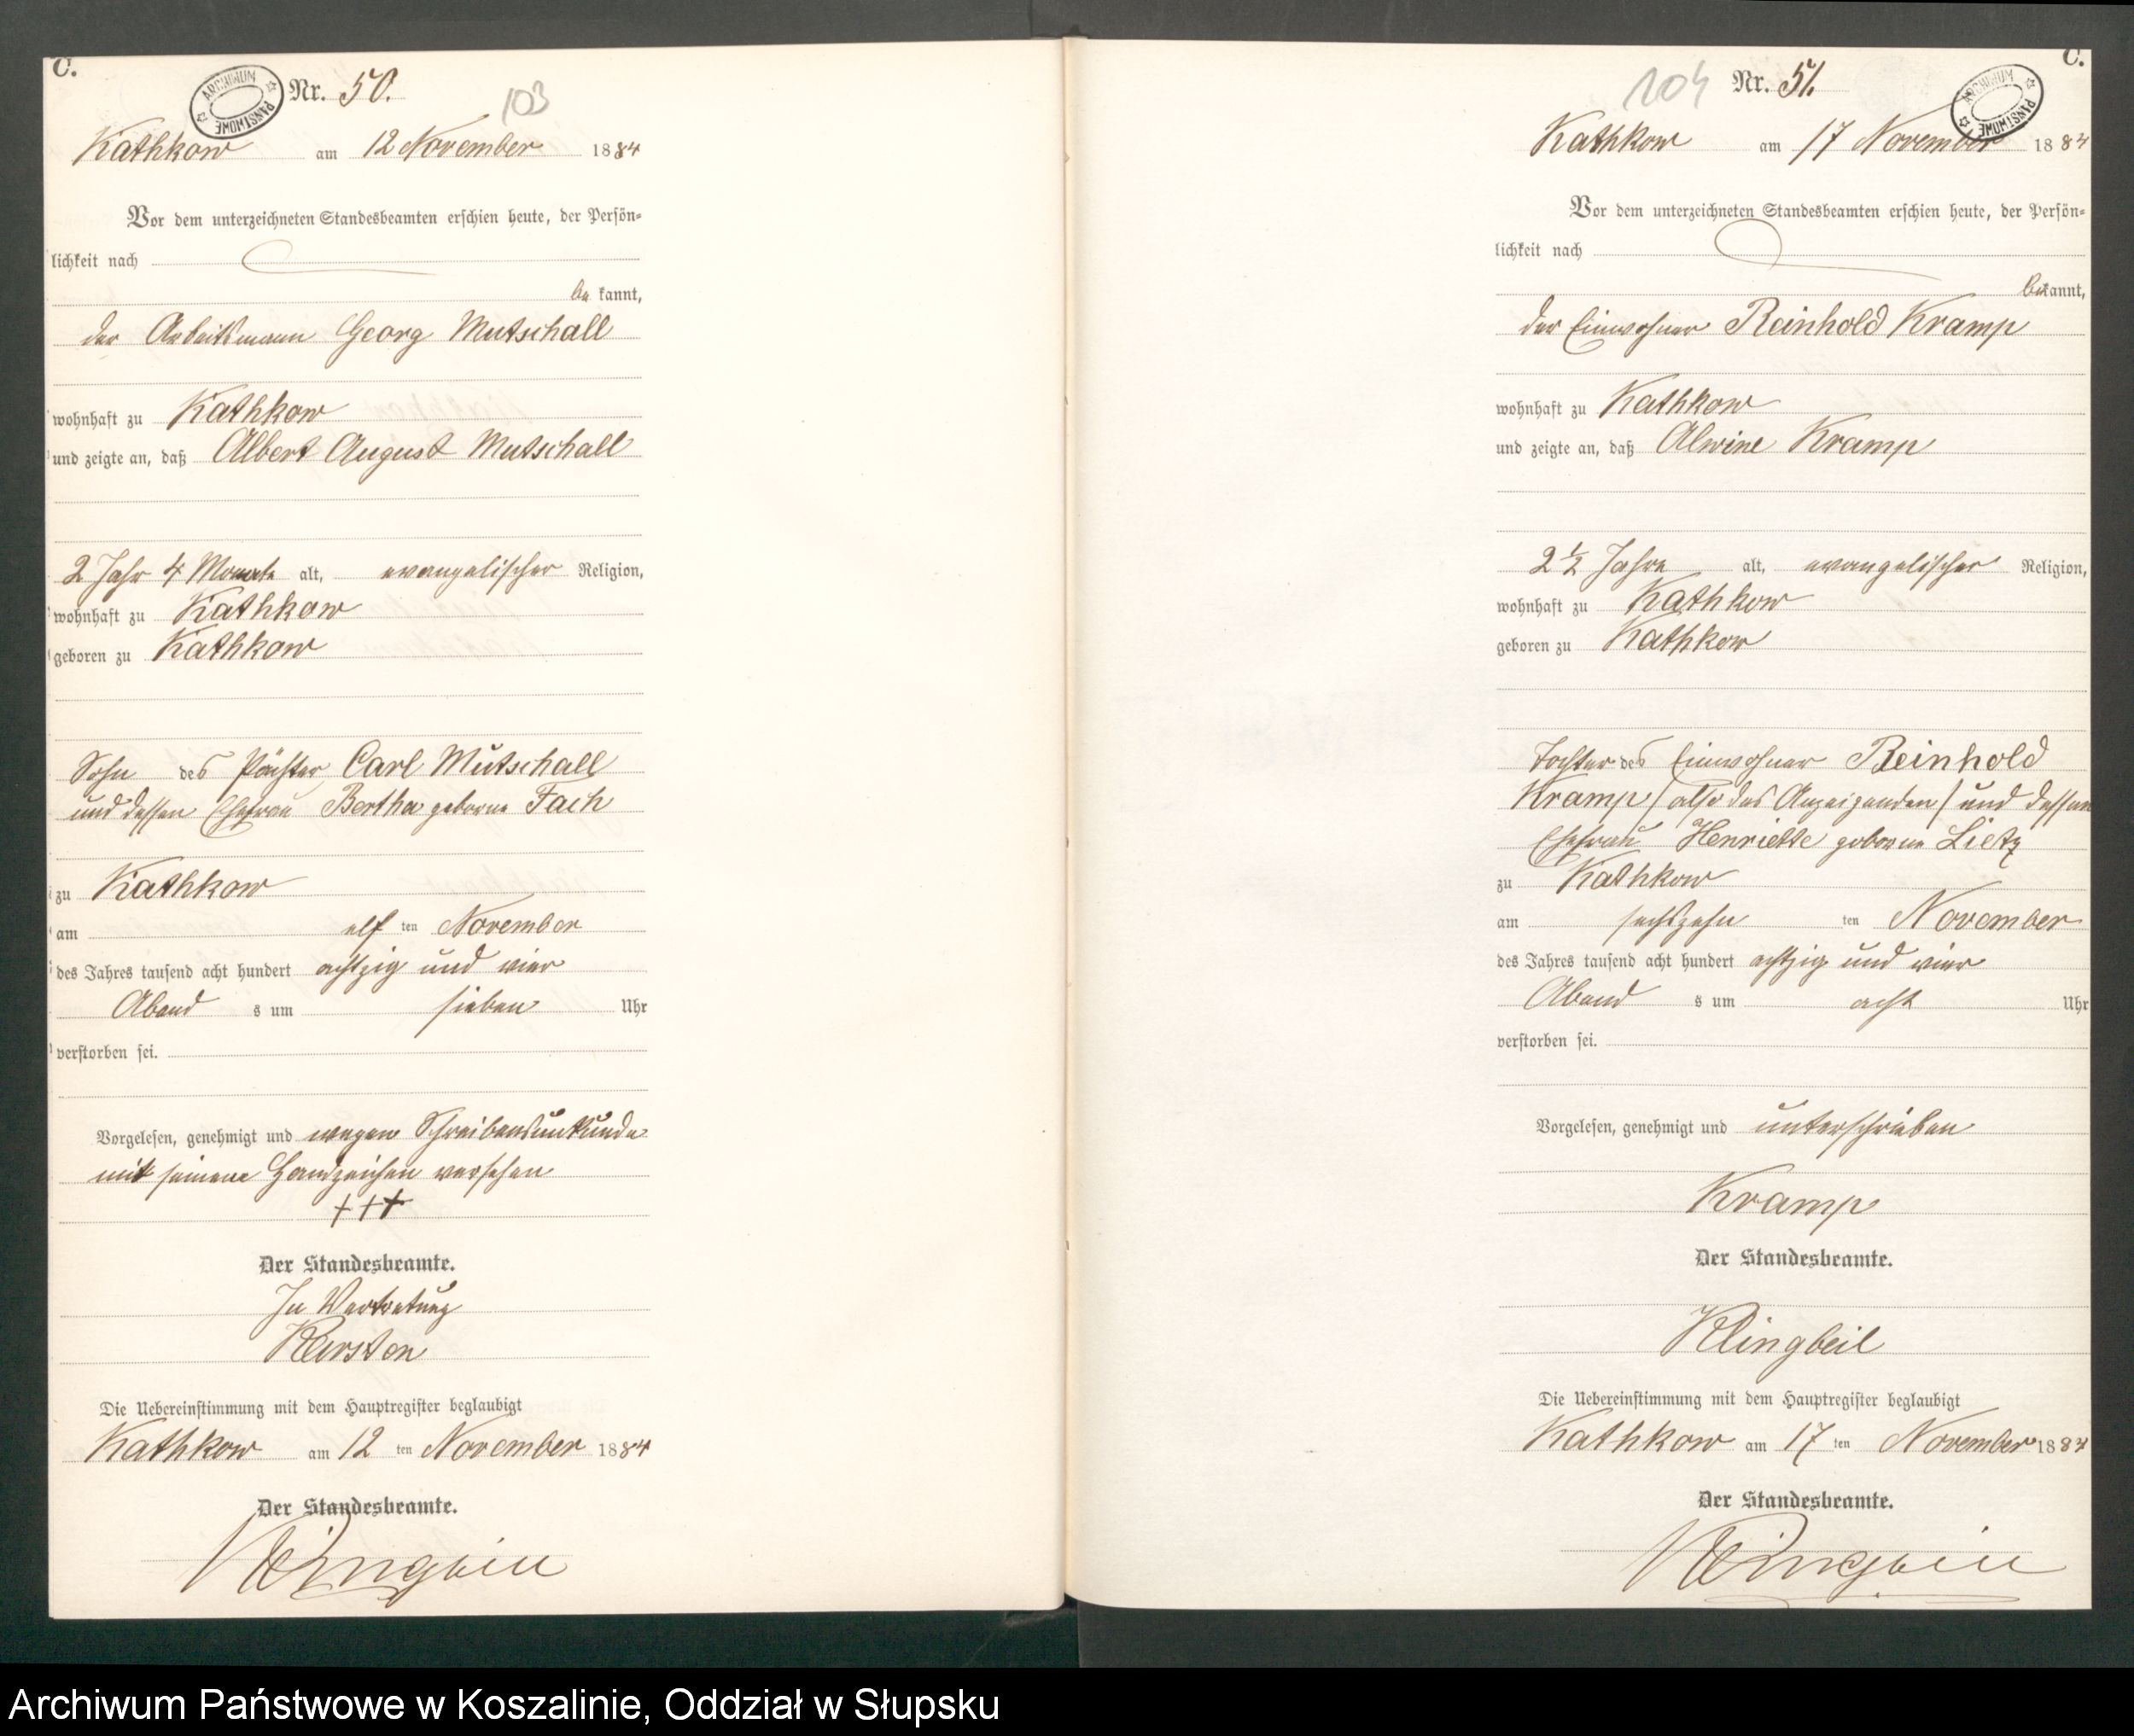 C.
ARCHIWUM PAŃSTWOWE
Nr. 50.
103
Kathkow am 12 November 1884
Vor dem unterzeichneten Standesbeamten erschien heute, der Persön-
lichkeit nach
be kannt,
der Arbeitsmann Georg Mutschall
wohnhaft zu Kathkow
und zeigte an, daß Albert August Mutschall
2 Jahr 4 Monate alt, evangelischer Religion,
wohnhaft zu Kathkow
geboren zu Kathkow
Sohn des Pächter Carl Mutschall
und dessen Ehefrau Bertha geborne Fach
zu Kathkow
am elf ten November
des Jahres tausend acht hundert achtzig und vier
Abend s um sieben Uhr
verstorben sei.
Vorgelesen, genehmigt und wegen Schreibensunkunde
mit seinem Handzeichen versehen
+++
Der Standesbeamte.
In Vertretung
Karsten
Die Uebereinstimmung mit dem Hauptregister beglaubigt
Kathkow am 12 ten November 1884
Der Standesbeamte.
Klingbeil
C.
104
Nr. 51.
ARCHIWUM PAŃSTWOWE
Kathkow am 17 November 1884
Vor dem unterzeichneten Standesbeamten erschien heute, der Persön-
lichkeit nach
bekannt,
der Einwohner Reinhold Kramp
wohnhaft zu Kathkow
und zeigte an, daß Alwine Kramp
2 1/2 Jahre alt, evangelischer Religion,
wohnhaft zu Kathkow
geboren zu Kathkow
Tochter des Einwohner Reinhold
Kramp /also des Anzeigenden/ und dessen
Ehefrau Henriette geborne Lietz
zu Kathkow
am sechszehn ten November
des Jahres tausend acht hundert achtzig und vier
Abend s um acht Uhr
verstorben sei.
Vorgelesen, genehmigt und unterschrieben
Kramp
Der Standesbeamte.
Klingbeil
Die Uebereinstimmung mit dem Hauptregister beglaubigt
Kathkow am 17 ten November 1884
Der Standesbeamte.
Klingbeil
Archiwum Państwowe w Koszalinie, Oddział w Słupsku